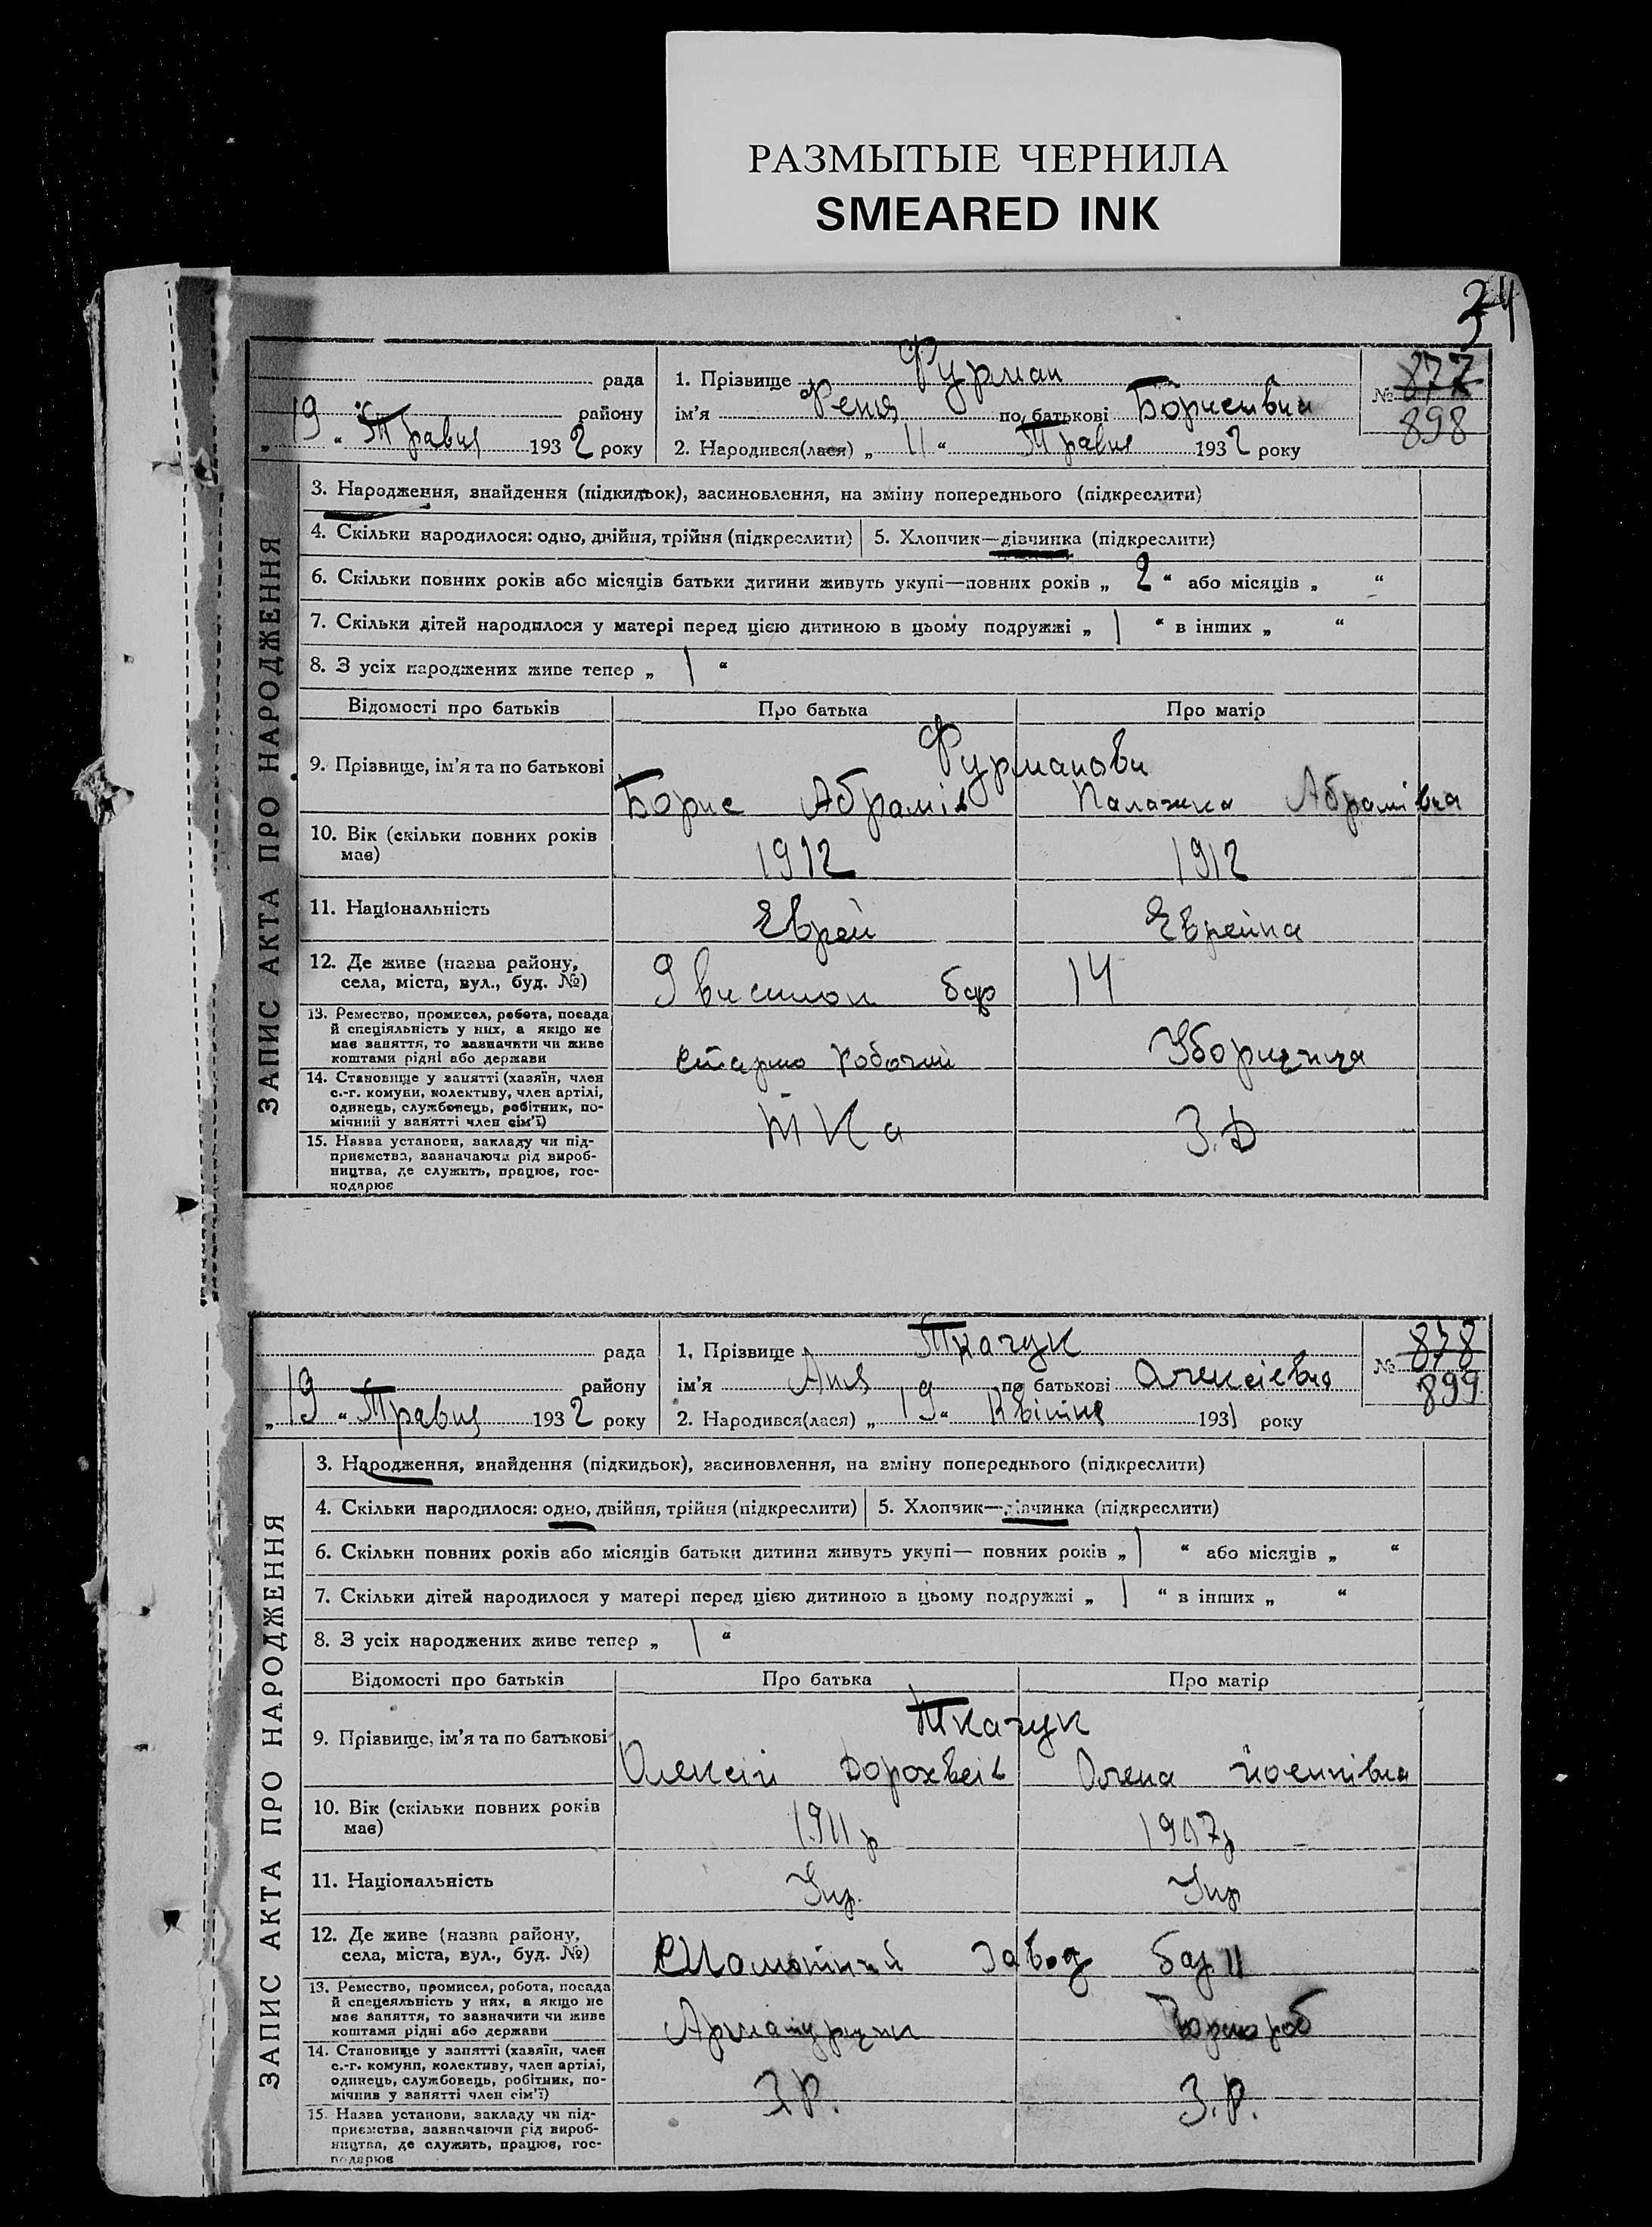 РАЗМЫТЫЕ ЧЕРНИЛА
SMEARED INK
34
ЗАПИС АКТА ПРО НАРОДЖЕННЯ
рада
району
„ 19 “ Травня 1932 року
1. Прізвище Фурман
ім’я Феня по батькові Борисівна
2. Народився(лася) „ 11 “ Травня 1932 року
№ 877
898
3. Народження, знайдення (підкидьок), засиновлення, на зміну попереднього (підкреслити)
4. Скільки народилося: одно, двійня, трійня (підкреслити) 5. Хлопчик—дівчинка (підкреслити)
6. Скільки повних років або місяців батьки дитини живуть укупі—повних років „ 2 “ або місяців „ “
7. Скільки дітей народилося у матері перед цією дитиною в цьому подружжі „ 1 “ в інших „ “
8. З усіх народжених живе тепер „ 1 “
Відомості про батьків Про батька Про матір
Фурманови
9. Прізвище, ім’я та по батькові Борис Абрамів Палажка Абрамівна
10. Вік (скільки повних років має) 1912 1912
11. Національність Еврей Еврейка
12. Де живе (назва району, села, міста, вул., буд. №) бар 14
13. Ремество, промисел, робота, посада
й спеціяльність у них, а якщо не
має заняття, то зазначити чи живе
коштами рідні або держави
робочий Уборщиця
14. Становище у занятті (хазяїн, член
с.-г. комуни, колективу, член артілі,
одинець, службовець, робітник, по-
мічний у занятті член сім’ї)
15. Назва установи, закладу чи під-
приємства, зазначаючи рід вироб-
ництва, де служить, працює, гос-
подарює
ЗАПИС АКТА ПРО НАРОДЖЕННЯ
рада
району
„ 19 “ Травня 1932 року
1. Прізвище Ткачук
ім’я Аня по батькові Олексіевна
2. Народився(лася) „ 19 “ Квітня 1931 року
№ 878
899
3. Народження, знайдення (підкидьок), засиновлення, на зміну попереднього (підкреслити)
4. Скільки народилося: одно, двійня, трійня (підкреслити) 5. Хлопчик—дівчинка (підкреслити)
6. Скільки повних років або місяців батьки дитини живуть укупі— повних років „ 1 “ або місяців „ “
7. Скільки дітей народилося у матері перед цією дитиною в цьому подружжі „ 1 “ в інших „ “
8. З усіх народжених живе тепер „ 1 “
Відомості про батьків Про батька Про матір
Ткачук
9. Прізвище, ім’я та по батькові Олексій Дорохвеів Олена Йосипівна
10. Вік (скільки повних років має) 1911 р 1907 р
11. Національність Укр. Укр
12. Де живе (назва району, села, міста, вул., буд. №) Завод бар. 11
13. Ремество, промисел, робота, посада
й спецеяльність у них, а якщо не
має заняття, то зазначити чи живе
коштами рідні або держави
Арматурщик Чорнороб
14. Становище у занятті (хазяїн, член
с.-г. комуни, колективу, член артілі,
одинець, службовець, робітник, по-
мічнив у занятті член сім’ї)
З.Р. З.Р.
15. Назва установи, закладу чи під-
приємства, зазначаючи рід вироб-
ництва, де служить, працює, гос-
подарює